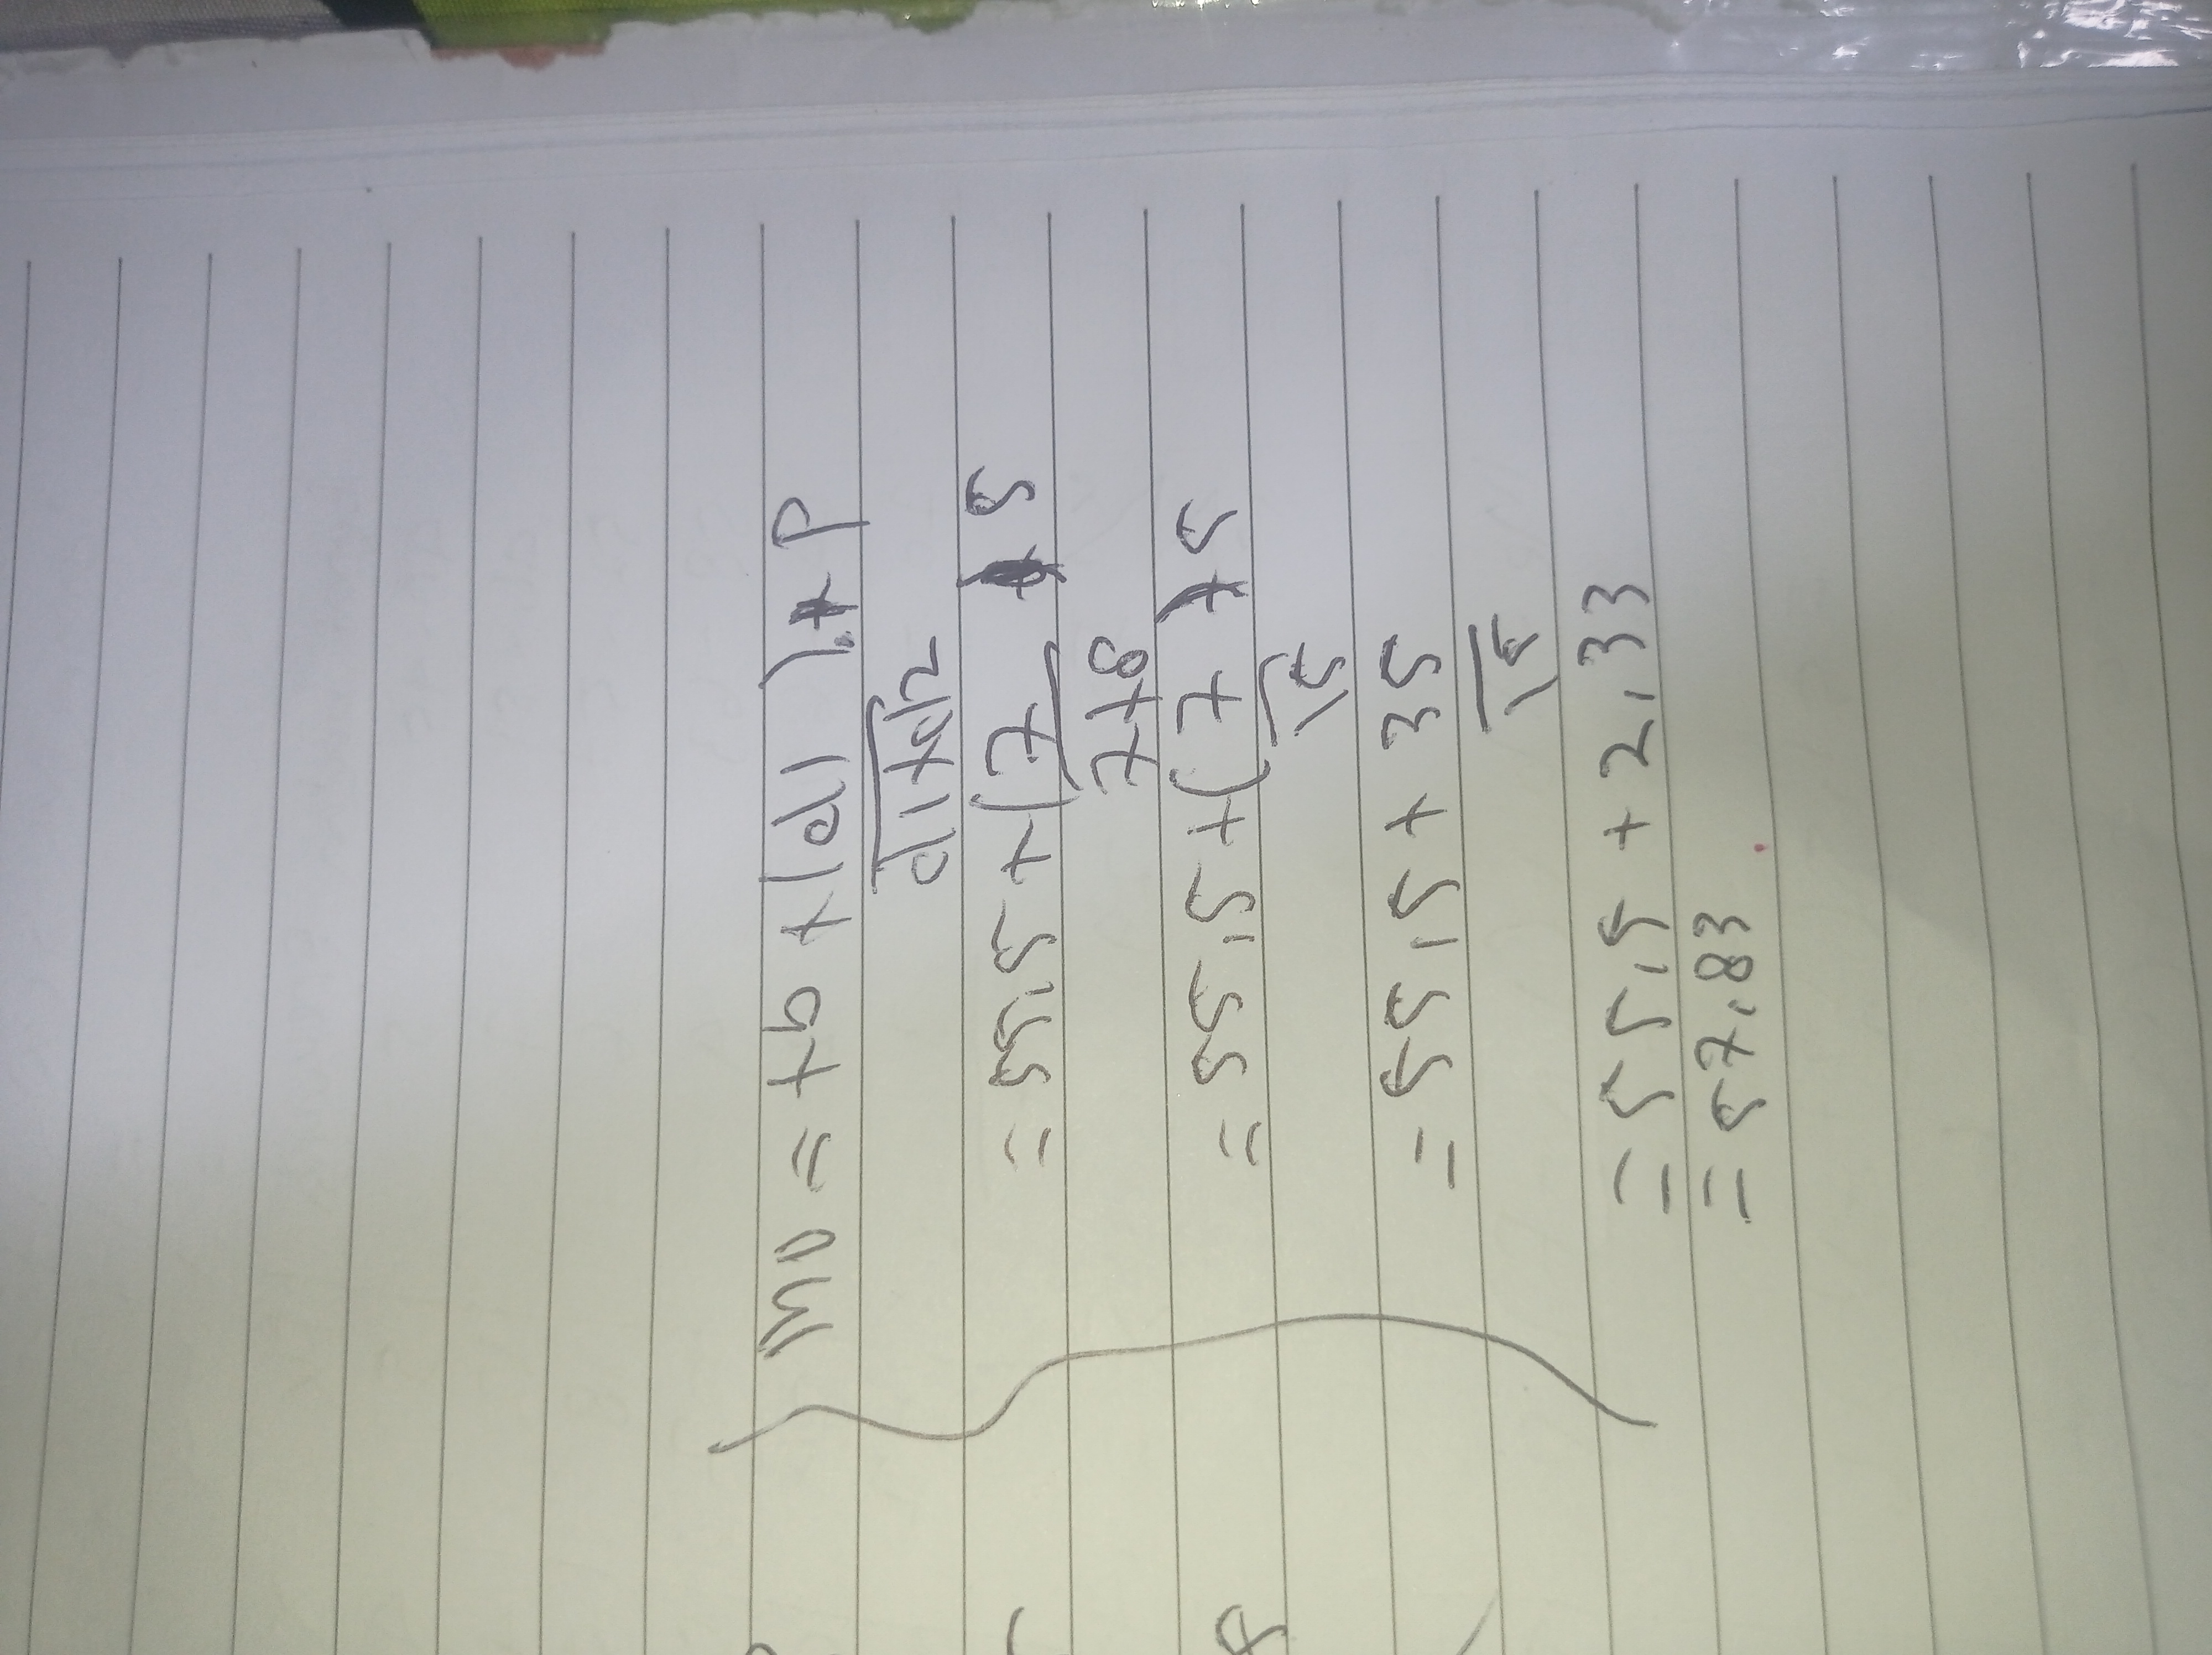 mo = tb + (d1) . * p
d1 + d2
= 55,5 + (7) * 5
7+8
= 55,5 + (7) * 5
15
= 55,5 + 35
15
= 55,5 + 2,33
= 57,83